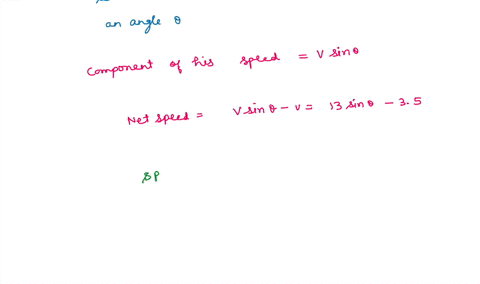 an angle θ
Component of his speed = V sinθ
Net speed = V sinθ - v = 13 sinθ - 3.5
SP